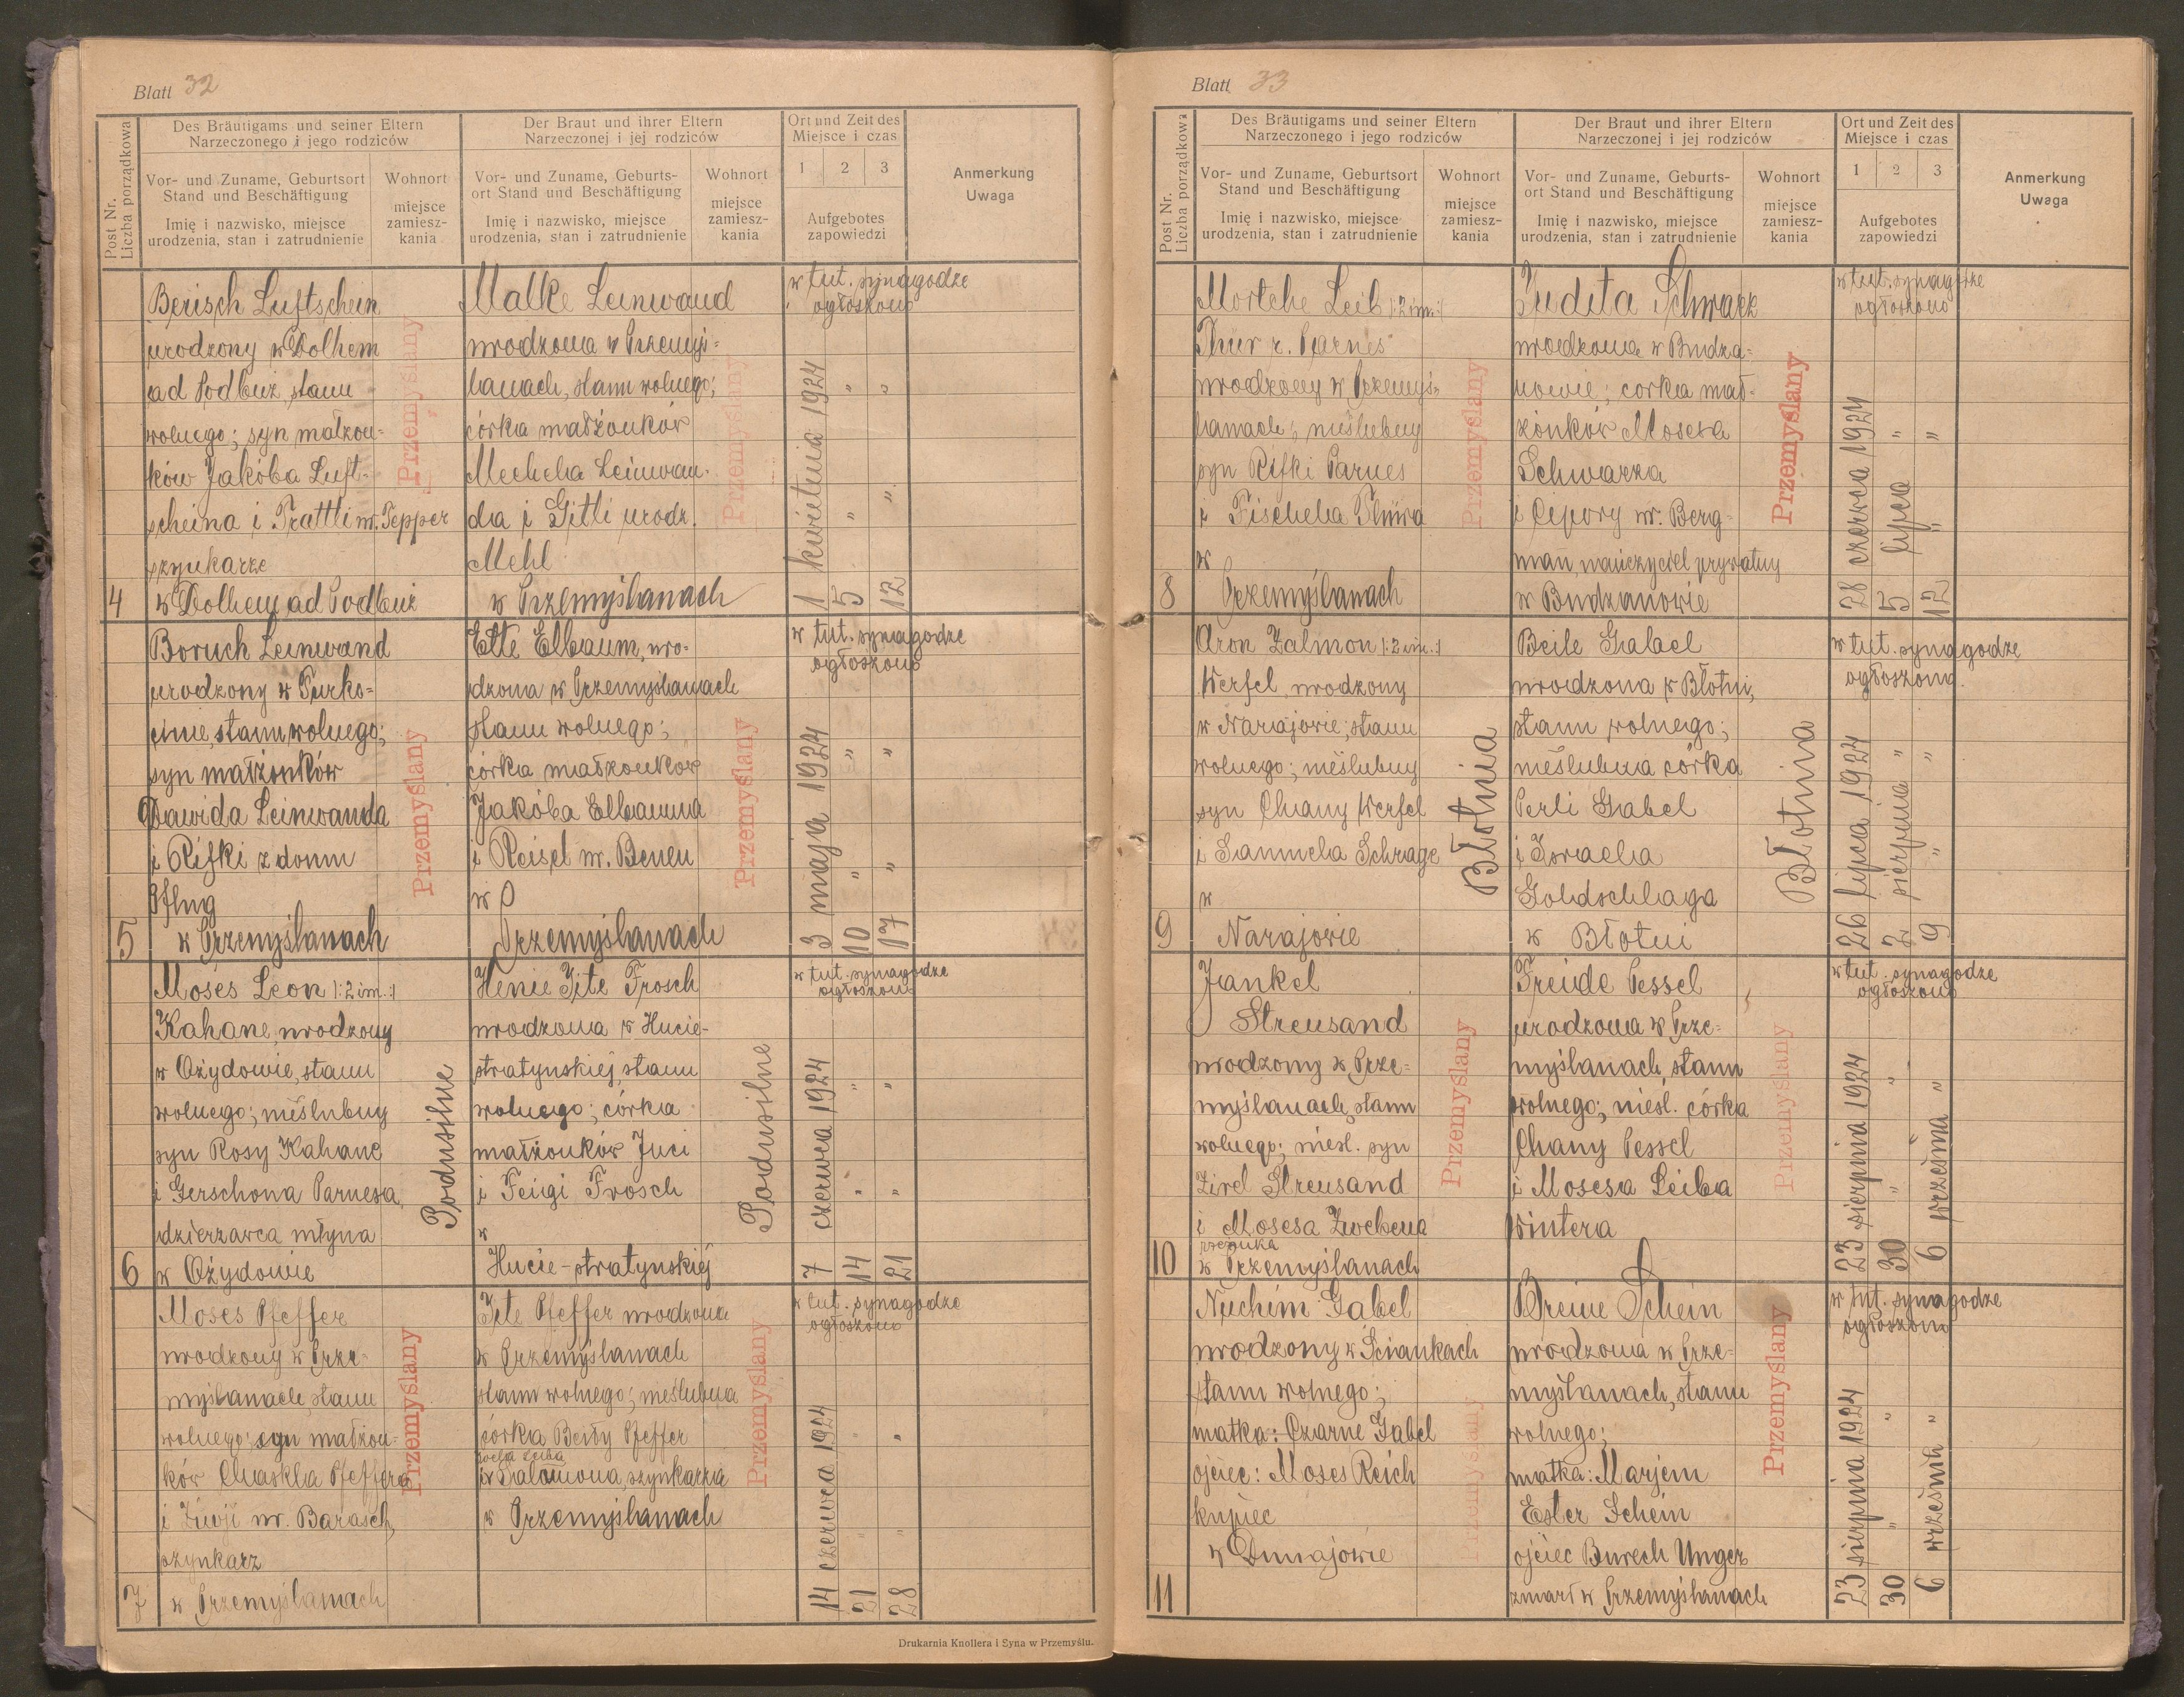 Blatt 32
Post Nr.
Liczba porządkowa
Des Bräutigams und seiner Eltern
Narzeczonego i jego rodziców
Der Braut und ihrer Eltern
Narzeczonej i jej rodziców
Ort und Zeit des
Miejsce i czas
Anmerkung
Uwaga
Vor- und Zuname, Geburtsort
Stand und Beschäftigung
Imię i nazwisko, miejsce
urodzenia, stan i zatrudnienie
Wohnort
miejsce
zamiesz-
kania
Vor- und Zuname, Geburts-
ort Stand und Beschäftigung
Imię i nazwisko, miejsce
urodzenia, stan i zatrudnienie
Wohnort
miejsce
zamiesz-
kania
1 2 3
Aufgebotes
zapowiedzi
4
Berisch Luftschein
urodzony w Dolhem
ad Podbuż, stanu
wolnego; syn małżon-
ków Jakóba Luft-
scheina i Trattli ur. Tepper
szynkarze
w Dolhem ad Podbuż
Przemyślany
Malke Leinwand
urodzona w Przemyś-
lanach, stanu wolnego;
córka małżonków
Mechela Leinwan-
da i Gitli urodz.
Mehl
w Przemyślanach
Przemyślany
w tut. synagodze
ogłoszono
1 kwietnia 1924
5 " "
12 " "
5
Boruch Leinwand
urodzony w Turko-
cinie, stanu wolnego;
syn małżonków
Dawida Leinwanda
i Rifki z domu
Pflug
w Przemyślanach
Przemyślany
Ette Elbaum, uro-
dzona w Przemyślanach
stanu wolnego;
córka małżonków
Jakóba Elbauma
i Reisel ur. Benen
w
Przemyślanach
Przemyślany
w tut. synagodze
ogłoszono
3 maja 1924
10 " "
17 " "
6
Moses Leon |:2 im.:|
Kahane, urodzony
w Ożydowie, stanu
wolnego; nieślubny
syn Rosy Kahane
i Gerschona Parnesa,
dzierżawca młyna
w Ożydowie
Podusilne
Henie Jite Frosch
urodzona w Hucie-
stratynskiej, stanu
wolnego; córka
małżonków Juci
i Feigi Frosch
w
Hucie-stratynskiej
Podusilne
w tut. synagodze
ogłoszono
7 czerwca 1924
14 " "
21 " "
7
Moses Pfeffer
urodzony w Prze-
myślanach, stanu
wolnego; syn małżon-
ków Chaskla Pfeffera
i Ziwji ur. Barasch,
szynkarz
w Przemyślanach
Przemyślany
Jite Pfeffer urodzona
w Przemyślanach
stanu wolnego; nieślubna
córka Beily Pfeffer
i Salomona, szynkarza
w Przemyślanach
Przemyślany
w tut. synagodze
ogłoszono
14 czerwca 1924
21 " "
28 " "
Drukarnia Knollera i Syna w Przemyślu.
Blatt 33
Post Nr.
Liczba porządkowa
Des Bräutigams und seiner Eltern
Narzeczonego i jego rodziców
Der Braut und ihrer Eltern
Narzeczonej i jej rodziców
Ort und Zeit des
Miejsce i czas
Anmerkung
Uwaga
Vor- und Zuname, Geburtsort
Stand und Beschäftigung
Imię i nazwisko, miejsce
urodzenia, stan i zatrudnienie
Wohnort
miejsce
zamiesz-
kania
Vor- und Zuname, Geburts-
ort Stand und Beschäftigung
Imię i nazwisko, miejsce
urodzenia, stan i zatrudnienie
Wohnort
miejsce
zamiesz-
kania
1 2 3
Aufgebotes
zapowiedzi
8
Mortche Leib |:2 im.:|
r. Parnes
urodzony w Przemyś-
lanach; nieślubny
syn Rifki Parnes
i Fischela
w
Przemyślanach
Przemyślany
Judita Schwarz
urodzona w Budza-
nowie; corka mał-
żonków Mosesa
Schwarza
i Cipory ur. Berg-
man, nauczyciel prywatny
w Budzanowie
Przemyślany
w tut. synagodze
ogłoszono
28 czerwca 1924
5 lipca "
12 " "
9
Aron Zalmon |:2 im.:|
Werfel, urodzony
w Narajowie; stanu
wolnego; nieślubny
syn Chany Werfel
i Samuela Schrage
w
Narajowie
Błotnia
Beile Gabel
urodzona w Błotni,
stanu wolnego;
nieślubna córka
Perli Gabel
i Israela
Goldschlaga
w Błotni
Błotnia
w tut. synagodze
ogłoszono
26 lipca 1924
2 sierpnia "
9 " "
10
Jankel
Streusand
urodzony w Prze-
myślanach, stanu
wolnego; nieśl. syn
Zirel Streusand
i Mosesa Zwekena
w Przemyślanach
Przemyślany
Freide Pessel
urodzona w Prze-
myślanach, stanu
wolnego; nieśl. córka
Chany Pessel
i Mosesa Leiba
Wintera
Przemyślany
w tut. synagodze
ogłoszono
23 sierpnia 1924
30 " "
6 września "
11
Nuchim Gabel
urodzony w Sciankach
stanu wolnego;
matka: Czarne Gabel
ojciec: Moses Reich
kupiec
w Dunajowie
Przemyślany
Breine Schein
urodzona w Prze-
myślanach, stanu
wolnego;
matka: Marjem
Ester Schein
ojciec Burech Unger
zmarł w Przemyślanach
Przemyślany
w tut. synagodze
ogłoszono
23 sierpnia 1924
30 " "
6 wrześnik "